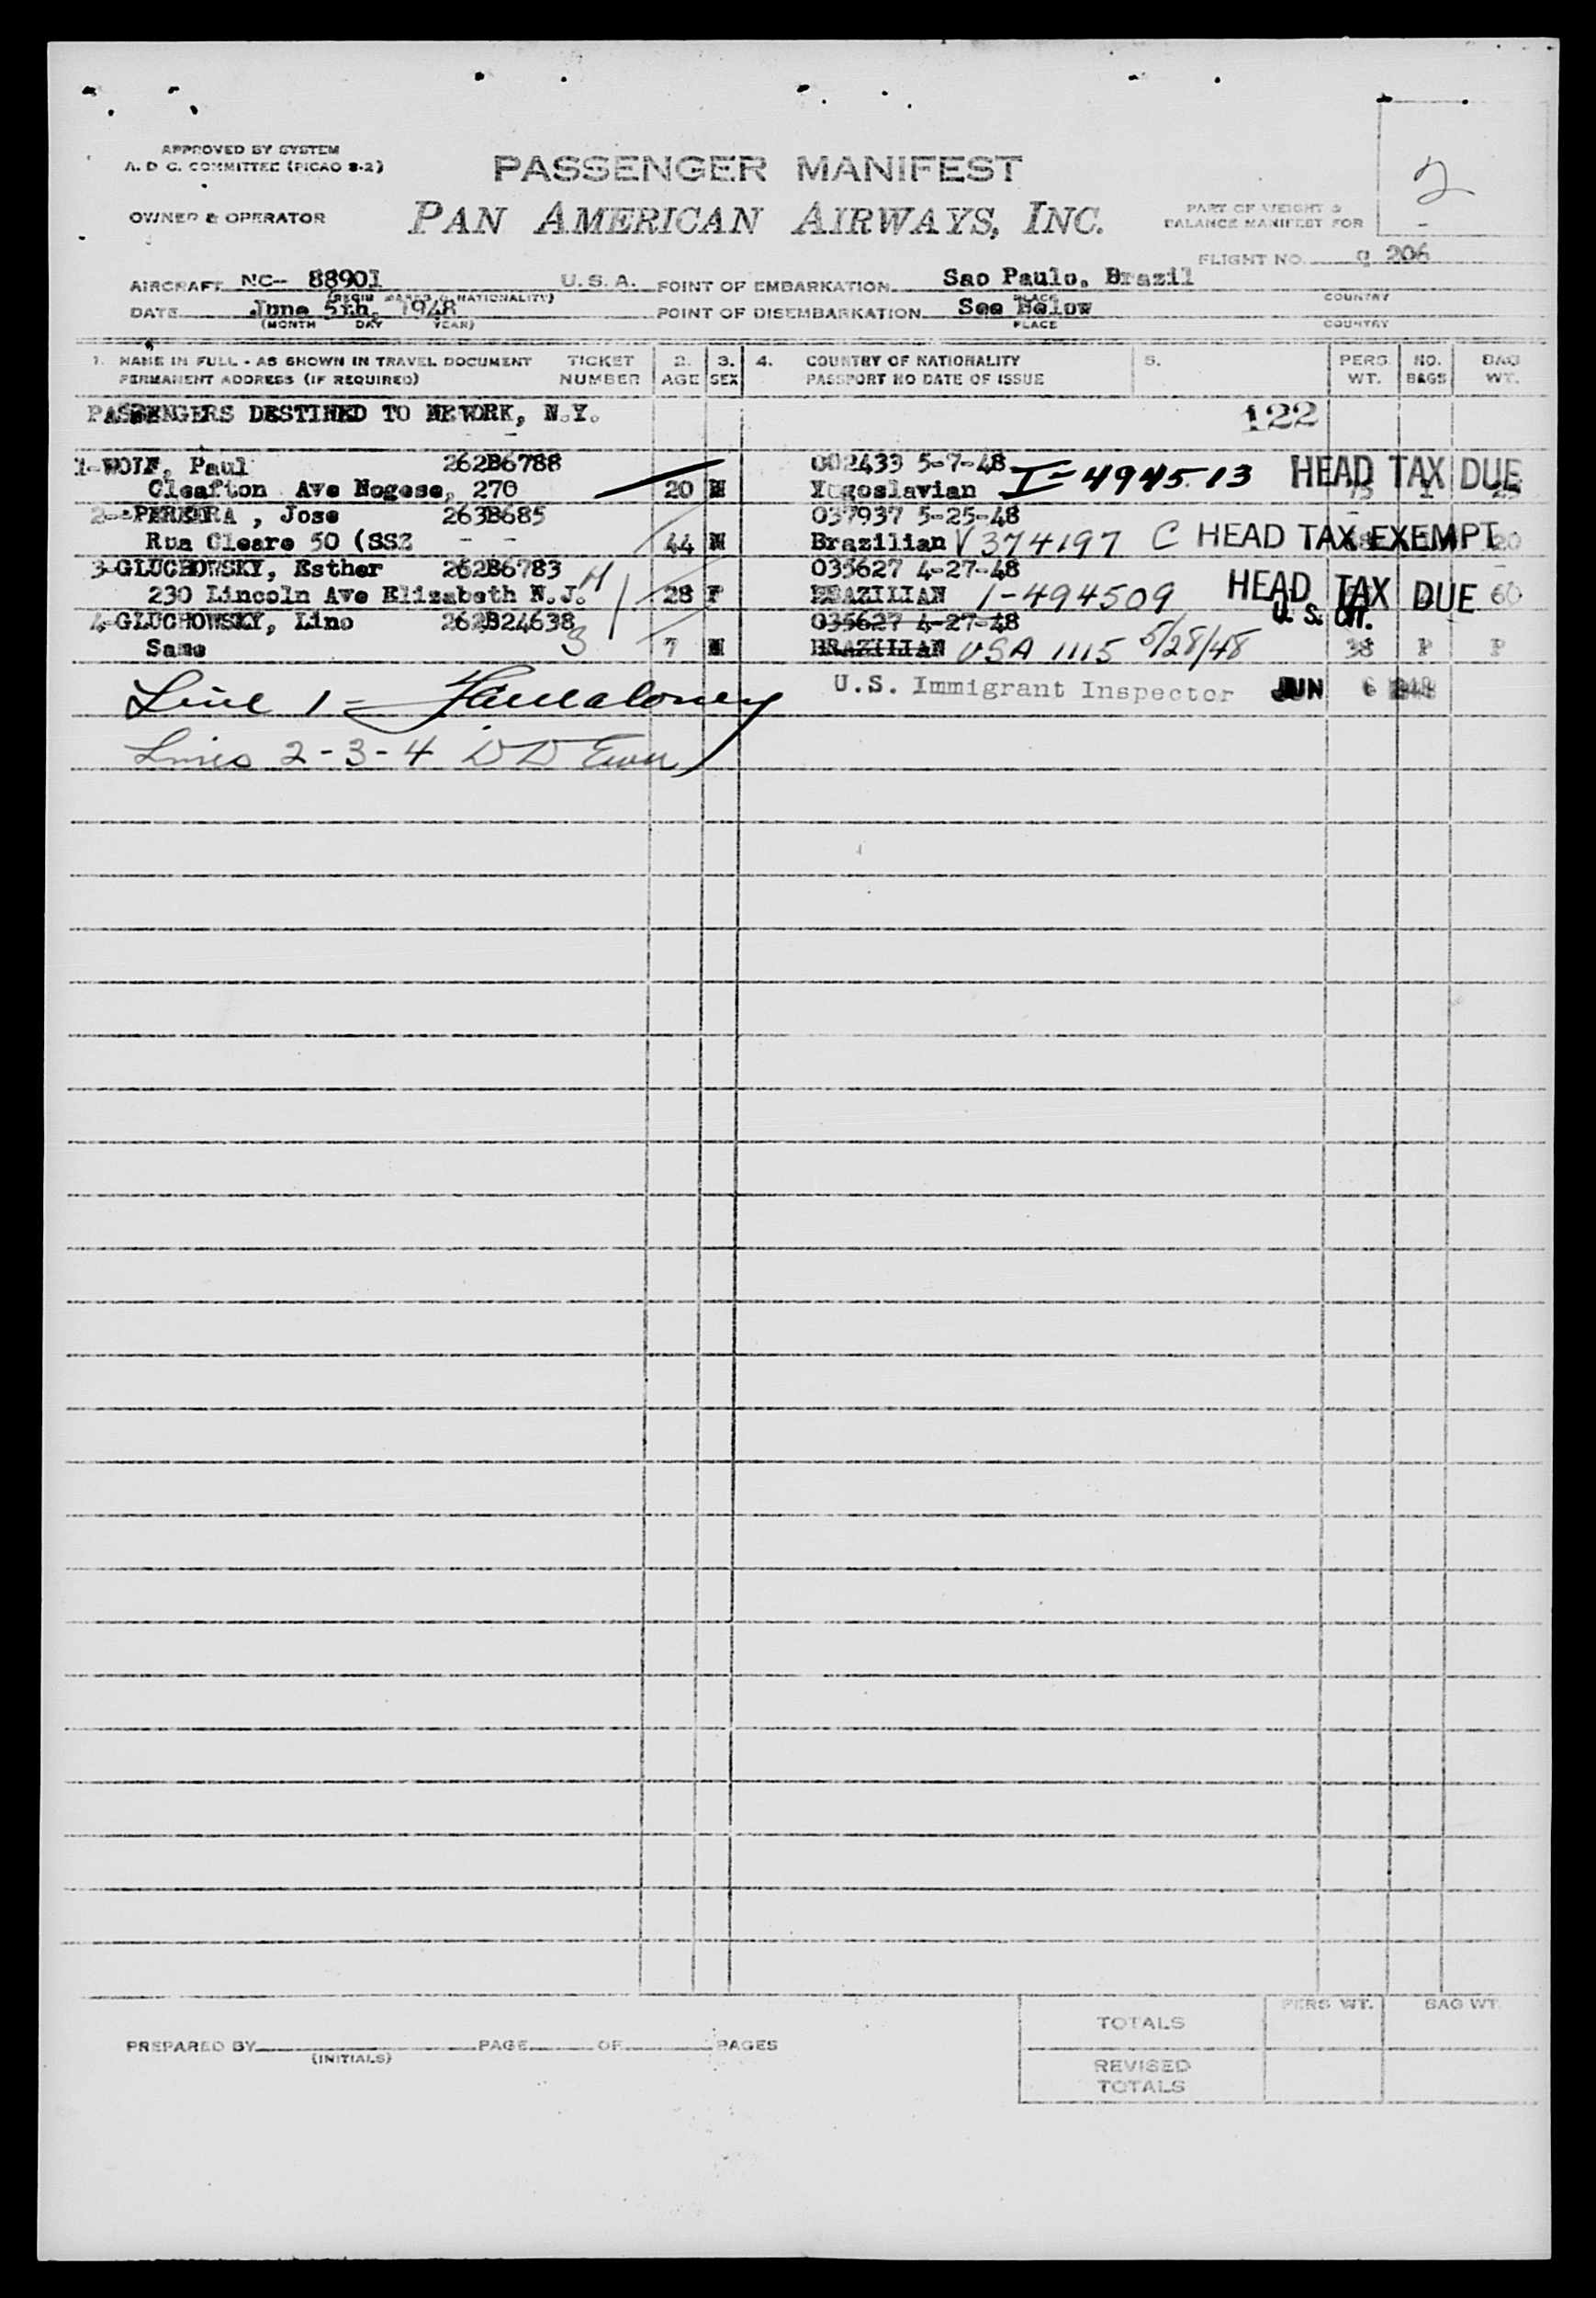 APPROVED BY SYSTEM
A. D C. COMMITTEE (PICAO 8-2)
PASSENGER MANIFEST
2
OWNER & OPERATOR
PAN AMERICAN AIRWAYS, INC.
PART OF WEIGHT &
BALANCE MANIFEST FOR
FLIGHT NO. 206
AIRCRAFT NC-- 88901 U. S. A. POINT OF EMBARKATION Sao Paulo, Brazil
NATIONALITY) PLACE COUNTRY
DATE June 5th, 1948 POINT OF DISEMBARKATION See Below
(MONTH DAY YEAR) PLACE COUNTRY
1. NAME IN FULL - AS SHOWN IN TRAVEL DOCUMENT TICKET 2. 3. 4. COUNTRY OF NATIONALITY 5. PERS. NO. BAG
PERMANENT ADDRESS (IF REQUIRED) NUMBER AGE SEX PASSPORT NO DATE OF ISSUE WT. BAGS WT.
PASSENGERS DESTINED TO NEWORK, N.Y. 122
1-WOLF, Paul 262B6788 002433 5-7-48 I-494513 HEAD TAX DUE
Cleafton Ave Nogese, 270 20 M Yugoslavian
2- , Jose 263B685 037937 5-25-48
Rua Cleare 50 (SSZ - - 44 M Brazilian V374197 C HEAD TAX EXEMPT
3-GLUCHOWSKY, Esther 262B6783 H 035627 4-27-48
230 Lincoln Ave Elizabeth N.J. 28 F BRAZILIAN I-494509 HEAD TAX DUE 60
4-GLUCHOWSKY, Lino 262B24638 035627 4-27-48 U. S. CIT.
Same 3 7 M BRAZILIAN USA 1115 5/28/48 38 P P
Line 1 = U.S. Immigrant Inspector JUN 6 1948
Lines 2-3-4 D D
PREPARED BY PAGE OF PAGES
(INITIALS)
PERS WT. BAG WT.
TOTALS
REVISED
TOTALS